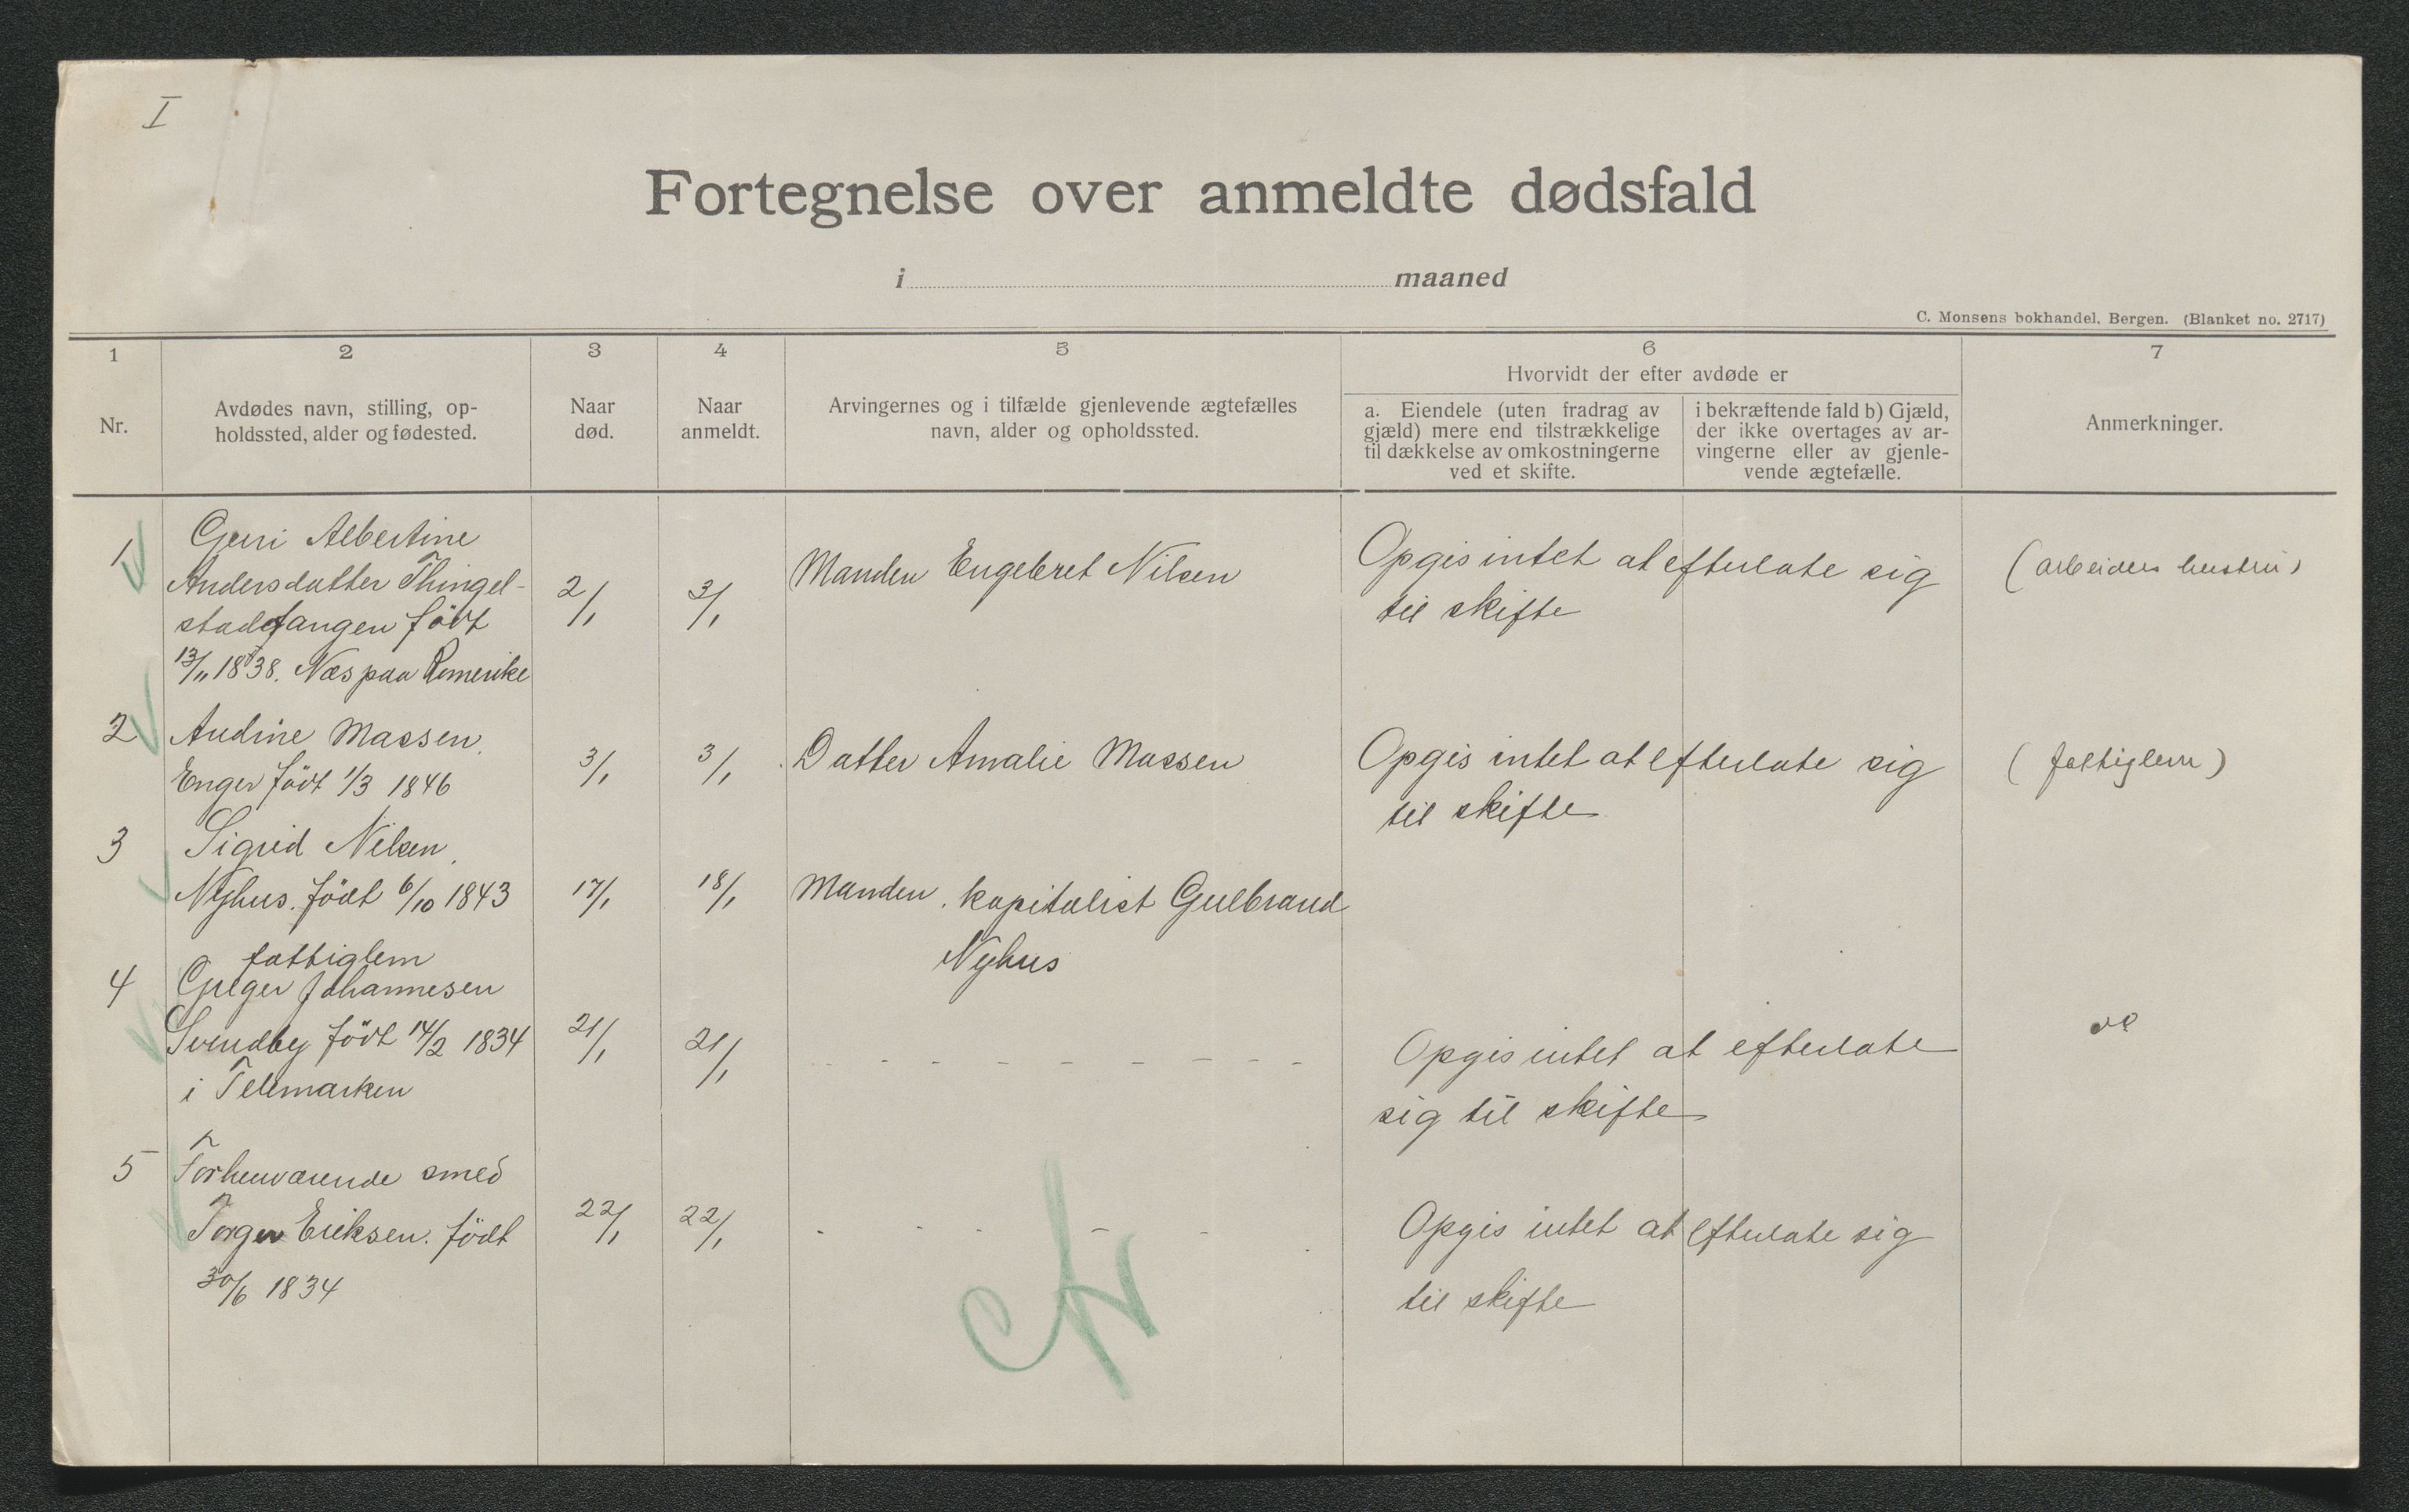 I
Fortegnelse over anmeldte dødsfald
i maaned
C. Monsens bokhandel, Bergen. (Blanket no. 2717)
1 2 3 4 5 6 7
Hvorvidt der efter avdøde er
Nr.
Avdødes navn, stilling, op-
holdssted, alder og fødested.
Naar
død.
Naar
anmeldt.
Arvingernes og i tilfælde gjenlevende ægtefælles
navn, alder og opholdssted.
a. Eiendele (uten fradrag av
gjæld) mere end tilstrækkelige
til dækkelse av omkostningerne
ved et skifte.
i bekræftende fald b) Gjæld,
der ikke overtages av ar-
vingerne eller av gjenle-
vende ægtefælle.
Anmerkninger.
1
Guri Albertine
Andersdatter Thingel-
stadfangen født
13/11 1838. Næs paa Romerike
2/1
3/1
Manden Engebret Nilsen
Opgis intet at efterlate sig
til skifte
(arbeiders hustru)
2
Audine Massen
Enger født 1/3 1846
3/1
3/1
Datter Amalie Massen
Opgis intet at efterlate sig
til skifte
(fattiglem)
3
Sigrid Nilsen
Nyhus. født 6/10 1843
17/1
18/1
Manden. kapitalist Gulbrand
Nyhus
4
fattiglem
Greger Johannesen
Svendby født 14/2 1834
i Telemarken
21/1
21/1
Opgis intet at efterlate
sig til skifte
5
Forhenværende smed
Torger Eriksen. født
30/6 1834
22/1
22/1
Opgis intet at efterlate sig
til skifte